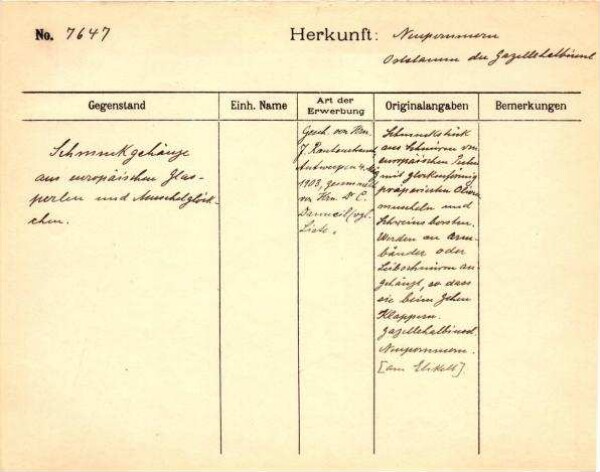 No. 7647
Herkunft: Neupommern
Oststamm der Gazellehalbinsel
Gegenstand
Einh. Name
Art der Erwerbung
Originalangaben
Bemerkungen
Schmuckgehänge
aus europäischen Glas-
perlen und Muschelglöck-
chen.
Gesch. von Hrn.
J. Rautenstrauch,
Antwerpen
1903, gesammelt
von Hrn. Dr. C.
Danneil, vgl.
Liste.
Schmuckstück
aus Schnüren von
europäischen Perlen
mit glockenförmig
präparierten
muscheln und
Schweinsborsten.
Werden an Arm-
bänder oder
Leibschnüren an-
gehängt, so dass
sie beim Gehen
Klappern.
Gazellehalbinsel
Neupommern.